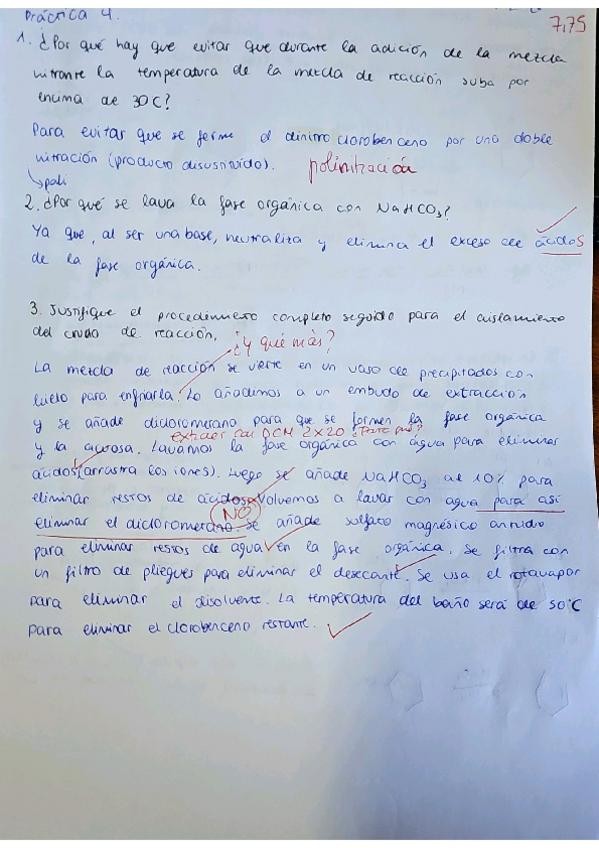 Práctica 4.
7,75
1. ¿Por qué hay que evitar que durante la adición de la mezcla
nitrante la temperatura de la mezcla de reacción suba por
encima de 30C?
Para evitar que se forme el dinitro clorobenceno por una doble
nitración (producto disustituido). polinitración
poli
2. ¿Por qué se lava la fase orgánica con NaHCO3?
Ya que, al ser una base, neutraliza y elimina el exceso de ácidos
de la fase orgánica.
3. Justifique el procedimiento completo seguido para el aislamiento
del crudo de reacción.
¿y qué más?
La mezcla de reacción se vierte en un vaso de precipitados con
hielo para enfriarla. Lo añadimos a un embudo de extracción
y se añade diclorometano para que se formen la fase orgánica
extraer con DCM 2x20
y la acuosa. Lavamos la fase orgánica con agua para eliminar
ácidos (arrastra los iones). Luego se añade NaHCO3 al 10% para
eliminar restos de ácidos. Volvemos a lavar con agua para así
NO
eliminar el diclorometano. Se añade sulfato magnésico anhidro
para eliminar restos de agua en la fase orgánica. Se filtra con
un filtro de pliegues para eliminar el desecante. Se usa el rotavapor
para eliminar el disolvente. La temperatura del baño será de 50°C
para eliminar el clorobenceno restante.